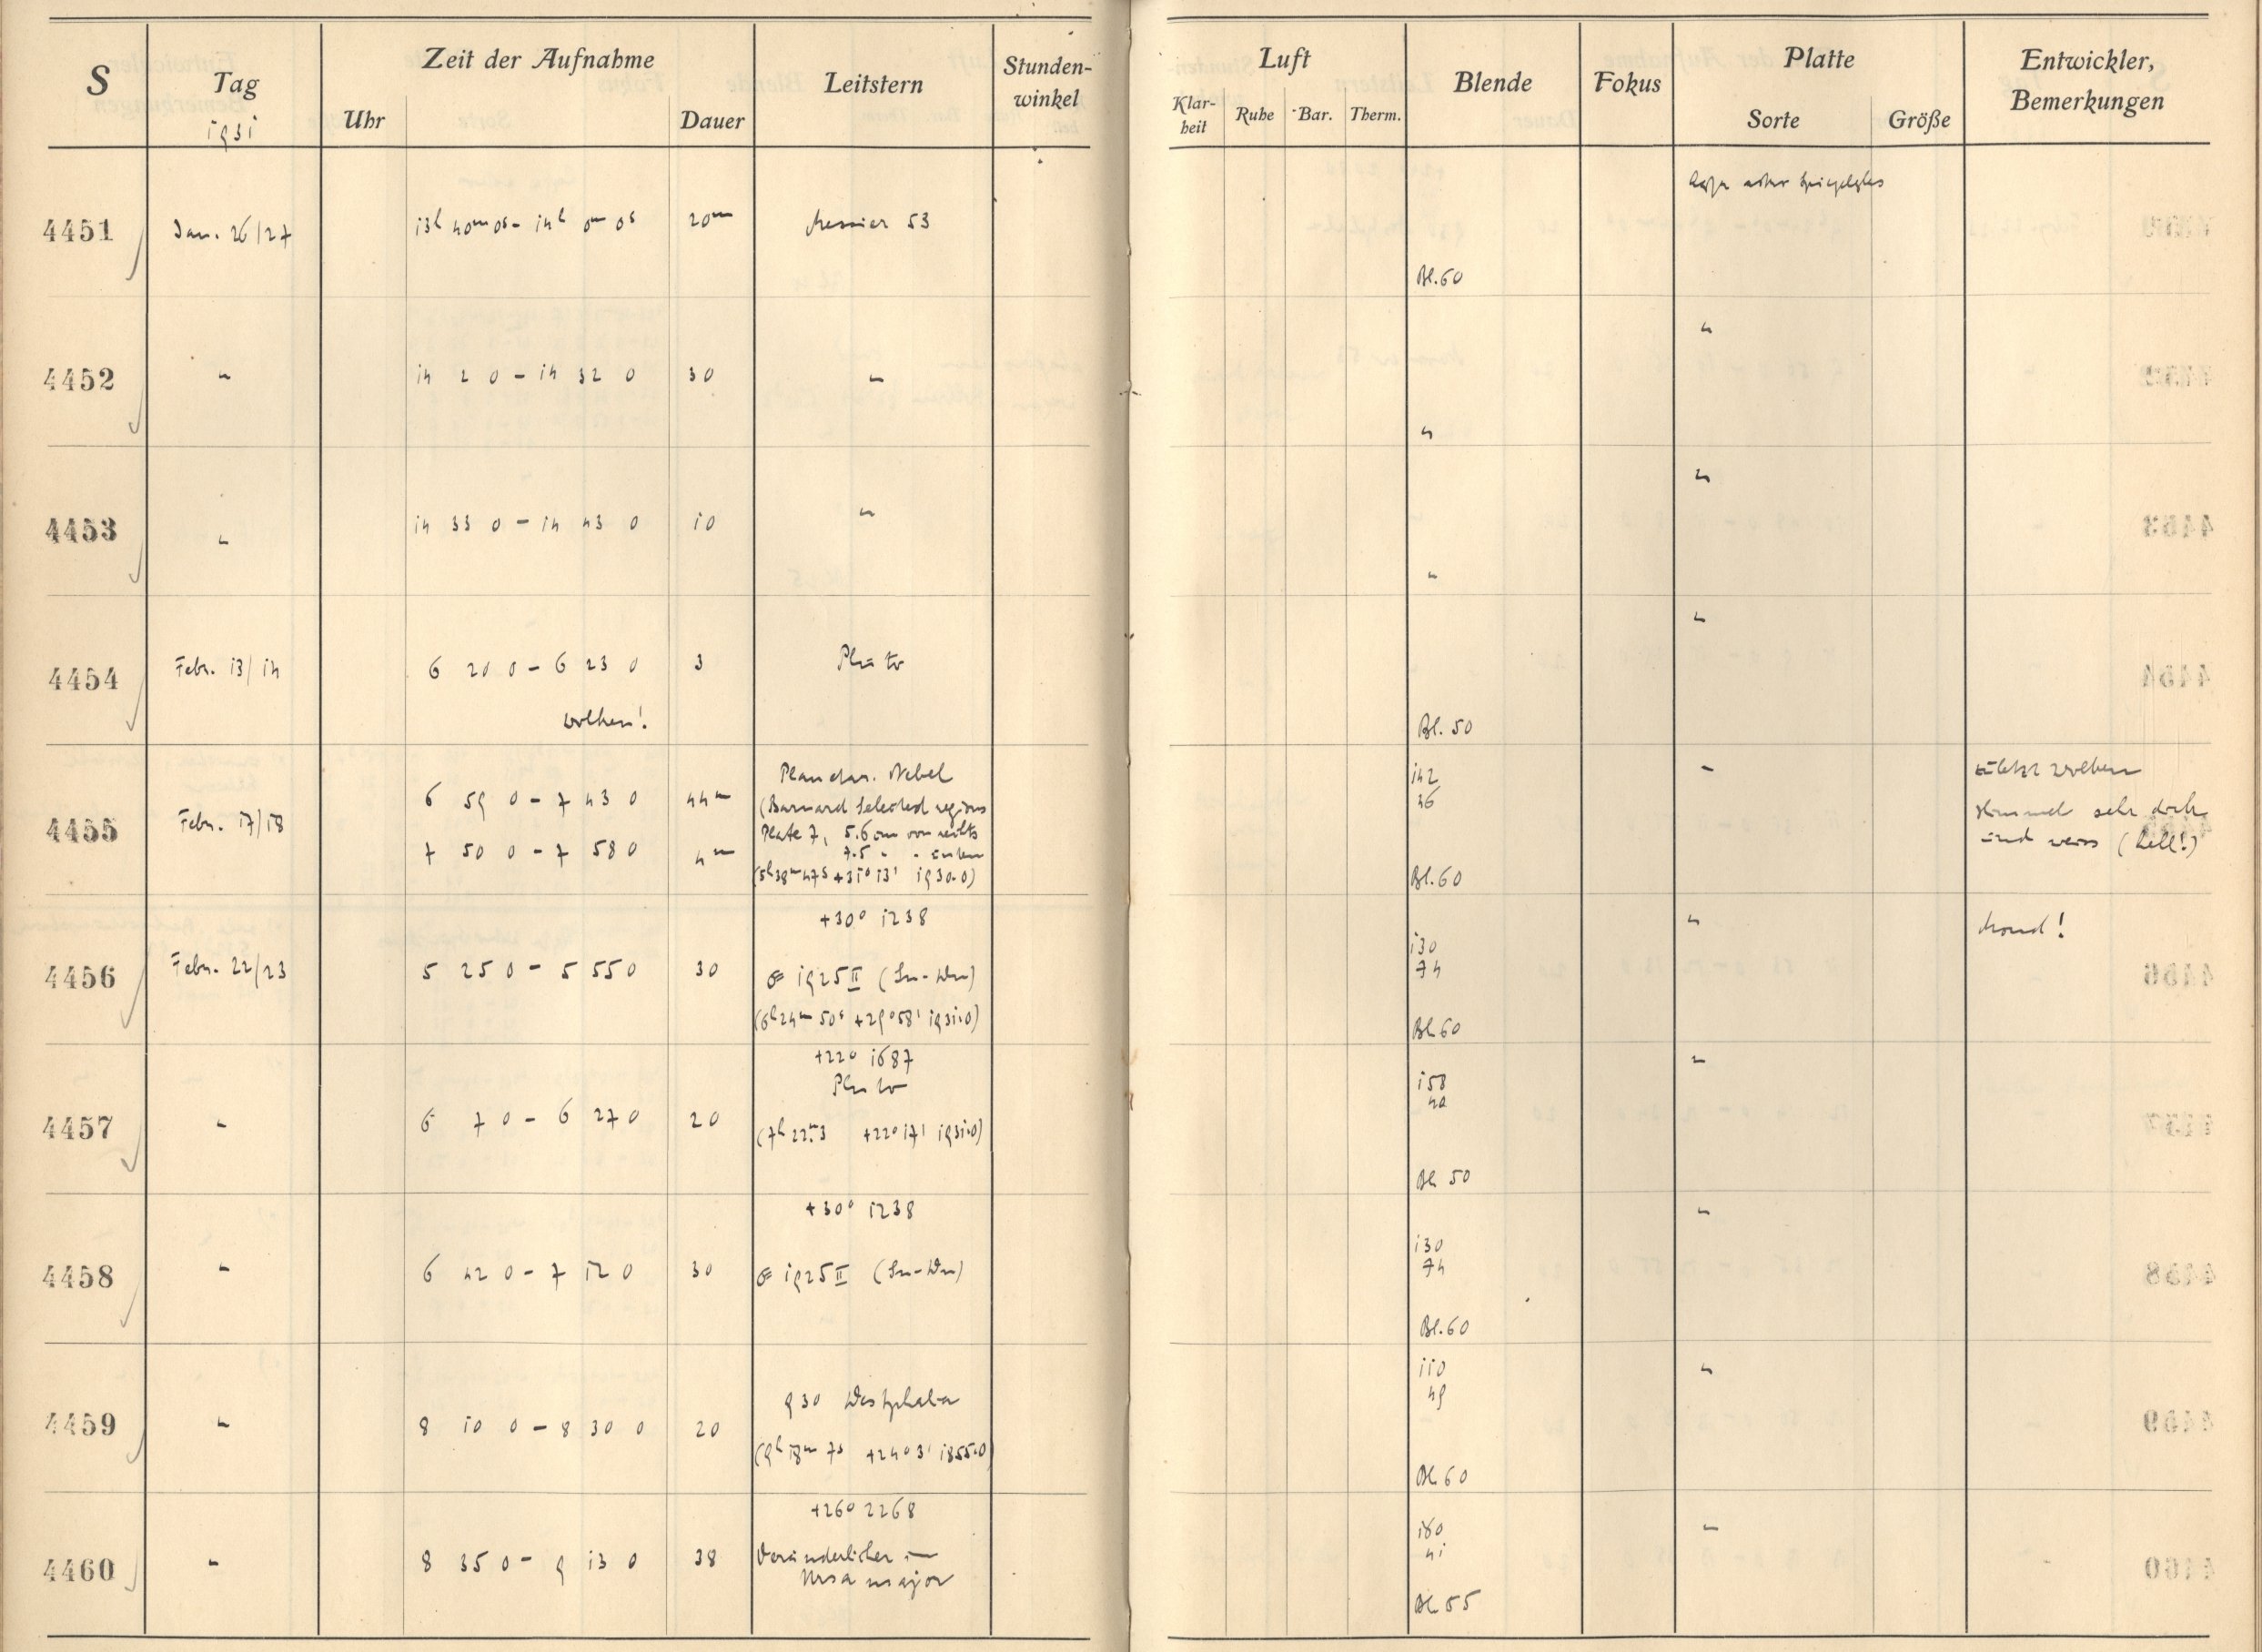 S Tag 1931 Zeit der Aufnahme Uhr Dauer Leitstern Stunden-winkel Luft Klar-heit Ruhe Bar. Therm. Blende Fokus Platte Sorte Größe Entwickler, Bemerkungen
4451 Jan. 26/27 13h 40m 0s - 14h 0m 0s 20m Messier 53 Bl. 60 Agfa astro Spiegelglas
4452 " 14 2 0 - 14 32 0 30 " " "
4453 " 14 33 0 - 14 43 0 10 " " "
4454 Febr. 13/14 6 20 0 - 6 23 0 3 Pluto "
Wolken! Bl. 50
Planetar. Nebel 142 " zuletzt Wolken
4455 Febr. 17/18 6 59 0 - 7 43 0 44m (Barnard Selected regions 46 Himmel sehr dick
Plate 7, 5.6 cm von rechts und weiss (hell!)
7 50 0 - 7 58 0 4m 7.5 " " unten
(5h 38m 47s +31° 13' 1930.0) Bl. 60
+30° 1238 " Mond!
4456 Febr. 22/23 5 25 0 - 5 55 0 30 1925 II (Su-Wu) 130
74
(6h 24m 50s +29° 58' 1931.0) Bl. 60
+22° 1687 "
Pluto 158
4457 " 6 7 0 - 6 27 0 20 (7h 22m.3 +22° 17' 1931.0) 42
Bl. 50
+30° 1238 "
4458 " 6 42 0 - 7 12 0 30 1925 II (Su-Wu) 130
74
Bl. 60
110 "
4459 " 8 10 0 - 8 30 0 20 930 Westphalia 49
(9h 18m 7s +24° 3' 1855.0) Bl. 60
+26° 2268 "
4460 " 8 35 0 - 9 13 0 38 Veränderlicher in 180
Ursa major 41
Bl. 55